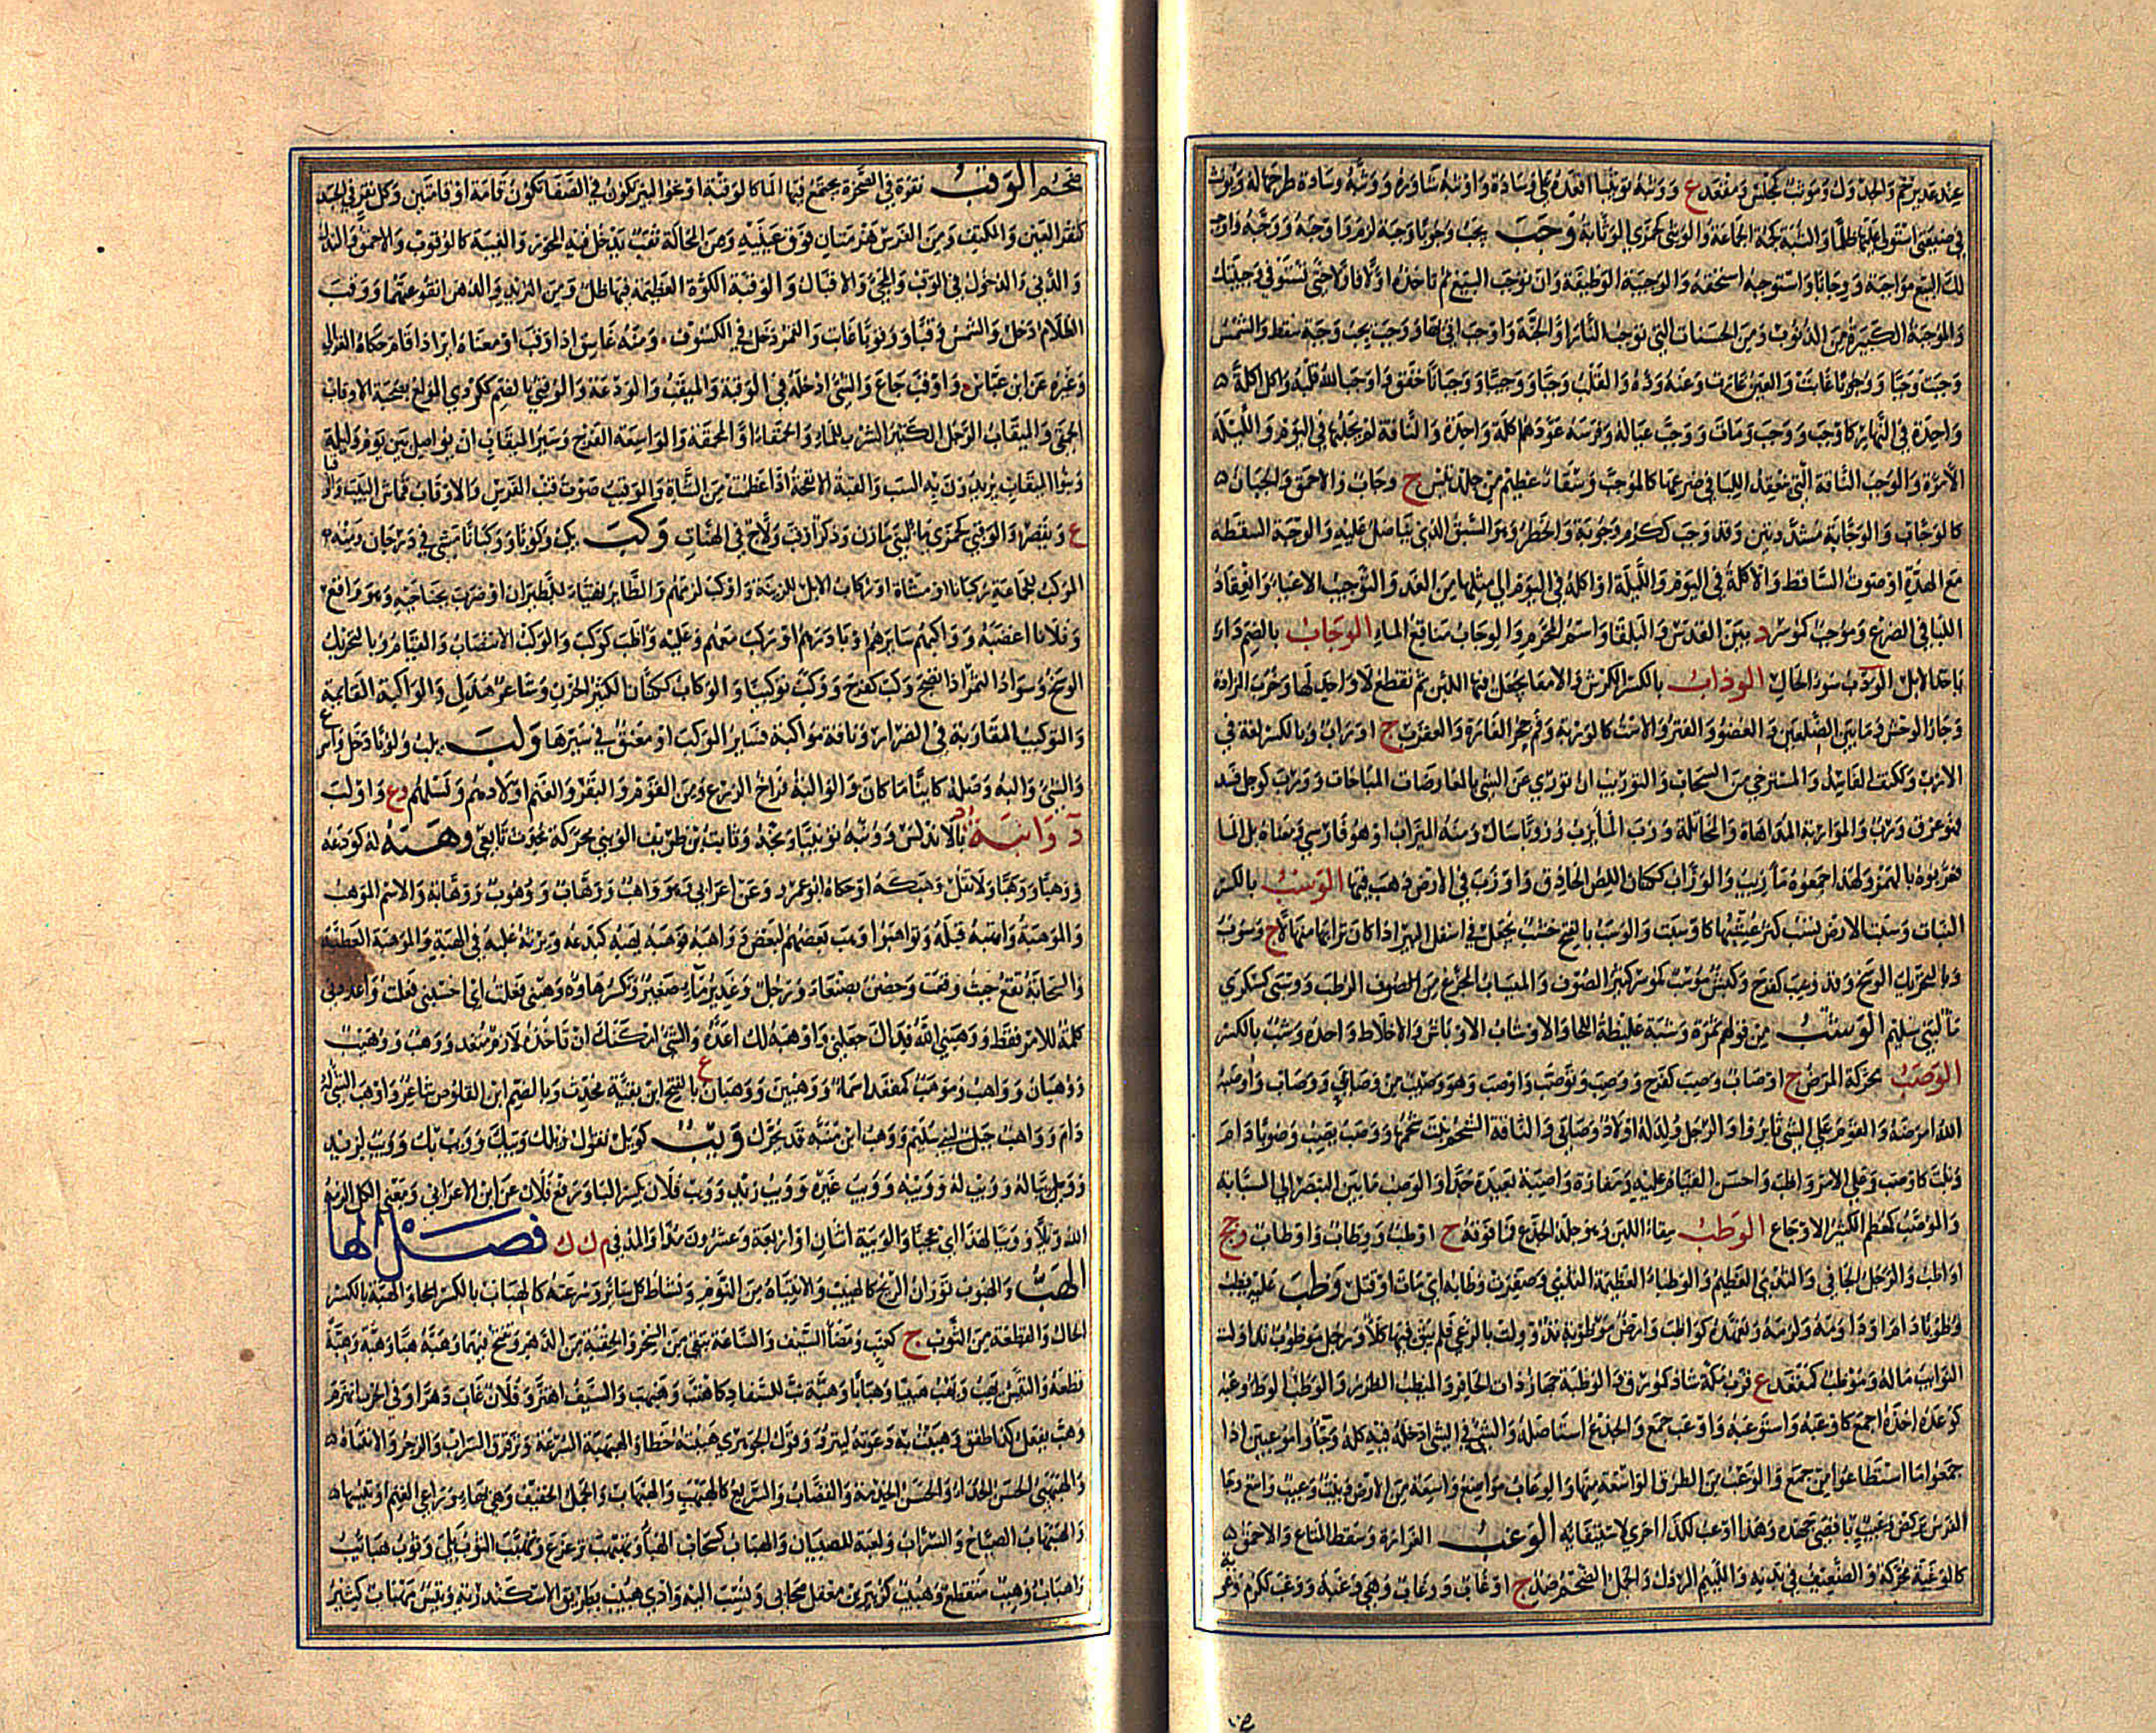 ووثبه توثيبا اقعده على وسادة واوثبه ساوره ووثبه وسادة طرحها له
في ضيعتي استولى عليها ظلما والثبة كجمة الجماعة والوثبى كجمزى الوثابة وجب يجب وجوبا وجبة لزم واوجبه ووجبه واوجب
لك البيع مواجبة ووجابا واستوجبه استحقه والوجيبة الوظيفة وان توجب البيع ثم تاخذه اولا فاولا حتى تستوفي وجيبتك
والموجبة الكبيرة من الذنوب ومن الحسنات التي توجب النار او الجنة واوجب اتى بها ووجب يجب وجبة سقط والشمس
وجبا ووجوبا غابت والعين غارت وعنه رده والقلب وجبا ووجيبا ووجبانا خفق واوجب الله قلبه واكل اكلة
واحدة في النهار كاوجب ووجب ومات ووجب عياله وفرسه عودهم اكلة واحدة والناقة لم يحلبها في اليوم والليلة
الا مرة والوجب الناقة التي ينعقد اللبا في ضرعها كالموجب وسقاء عظيم من جلد تيس ج وجاب والاحمق والجبان
كالوجاب والوجابة مشددتين وقد وجب ككرم وجوبة والخطر وهو السبق الذي يناضل عليه والوجبة السقطة
مع الهدة او صوت الساقط والاكلة في اليوم والليلة او اكلة في اليوم الى مثلها من الغد والتوجيب الاعياء وانعقاد
اللبا في الضرع وموجب كموسر د بين القدس والبلقاء واسم المحرم والوجاب مناقع الماء الوجاب بالضم داء
ياخذ الابل الودب سوء الحال الوذاب بالكسر الكرش والامعاء يجعل فيها اللبن ثم تقطع لا واحد لها وخرب المزادة
وجار الوحش وما بين الضلعين والعضو والفتر والاست كالوربة وفم جحر الفارة والعقرب ج اوراب وبالكسر لغة في
الارب وككتف الفاسد والمسترخي من السحاب والتوريب ان توري عن الشي بالمعارضات المباحات وورب كوجل فسد
فهو عرق ورب والمواربة المداهاة والمخاتلة وزب الماء يزب وزوبا سال ومنه الميزاب او هو فارسي ومعناه بل الماء
فعربوه بالهمز ولهذا جمعوه مآزيب والوزاب ككتان اللص الحاذق واوزب في الارض ذهب فيها الوسب بالكسر
النبات وسبت الارض تسب كثر عشبها كاوسبت والوسب بالفتح خشب يجعل في اسفل البئر اذا كان ترابها منهالا ج وسوب
وبالتحريك الوسخ وقد وسب كفرح وكبش موسب كموسر كثير الصوف والميساب المجزع من الرطب ووسبى كسكرى
ماء لبني سليم الوشب من قولهم تمرة وشبة غليظة اللحاء والاوشاب الاوباش والاخلاط واحده وشب بالكسر
الوصب محركة المرض ج اوصاب وصب كفرح ووصب وتوصب واوصب وهو وصب من وصابى ووصاب واوصبه
الله امرضه والقوم على الشي ثابروا والرجل ولد له اولاد وصابى والناقة الشحم ثبت شحمها ووصب يصب وصوبا دام
وثبت كاوصب وعلى الامر واظب واحسن القيام عليه ومفازة واصبة بعيدة جدا والوصب ما بين البنصر الى السبابة
والموصب كمعظم الكثير الاوجاع الوطب سقاء اللبن وهو جلد الجذع فما فوقه ج اوطب ووطاب واوطاب وجج
اواطب والرجل الجافي والثدي العظيم والوطباء العظيمة الثدي وصفرت وطابه اي مات او قتل وظب عليه يظب
وظوبا دام او داومه ولزمه وتعهده كواظب وارض موظوبة تدوولت بالرعي فلم يبق فيها كلأ ورجل موظوب تداولت
النوائب ماله وموظب كمقعد ع قرب مكة شاذ كمورق والوظبة جهاز ذات الحافر والميظب الظرر والوظب الوطء وعبه
كوعده اخذه اجمع كاوعبه واستوعبه واوعب جمع والجذع استاصله والشي في الشي ادخله فيه كله وجاؤا موعبين اذا
جمعوا ما استطاعوا من جمع والوعب من الطرق الواسعة منها والوعاب مواضع واسعة من الارض وبيت وعيب واسع وجا
الفرس بركض وعيب باقصى جهده وهذا اوعب لكذا احرى لاستيفائه الوغب الغرارة وسقط المتاع والاحمق
كالوغبة محركة والضعيف في بدنه واللئيم الرذل والجمل الضخم ضد ج اوغاب ووغاب وهي وغبة ووغب ككرم
ضخم الوقب نقرة في الصخرة يجتمع فيها الماء كالوقبة او نحو البئر يكون في الصفا تكون قامة او قامتين وكل نقر في الجسد
كنقر العين والكتف ومن الفرس هزمتان فوق عينيه ومن المحالة ثقب يدخل فيه المحور والغيبة كالوقوب والاحمق والنذل
والدنى والدخول في الوقب والمجيء والاقبال والوقبة الكوة العظيمة فيها ظل ومن الثريد والدهن انقوعتهما ووقب
الظلام دخل والشمس وقبا ووقوبا غابت والقمر دخل في الكسوف ومنه غاسق اذا وقب او معناه اير اذا قام حكاه الغزالي
وغيره عن ابن عباس واوقب جاع والشي ادخله في الوقبة والميقب والودعة والوقبي بالضم ككردي المولع بصحبة الاوقاب
الحمقى والميقاب الرجل الكثير الشرب للماء والحمقاء او المحمقة والواسعة الفرج وسير الميقاب ان يواصل بين يوم وليلة
وبنوا الميقاب يريدون به السب والقبة الانفحة اذا عظمت من الشاة والوقيب صوت قنب الفرس والاوقاب قماش البيت
ع ويقصر والوقبى كجمزى ماء لبني مازن وذكر اوقب ولاج في الهنات وكب يكب وكوبا ووكبانا مشى في درجان ومنه
الموكب للجماعة ركبانا او مشاة او ركاب الابل للزينة واوكب لزمهم والطائر تهيأ للطيران او ضرب بجناحيه وهو واقع
وفلانا اغضبه وواكبهم سايرهم او بادرهم او ركب معهم وعليه واظب كوكب والوكب الانتصاب والقيام وبالتحريك
الوسخ وسواد التمر اذا نضج وكب كفرح ووكب توكيبا والوكاب ككتان الكثير الحزن وشاعر هذلي والواكبة القائمة
والتوكيب المقاربة في الصرار وناقة مواكبة تساير الموكب او معنق في سيرها ولب يلب ولوبا دخل
والشي واليه وصله كائنا ما كان والوالبة فراخ الزرع ومن القوم والبقر والغنم اولادهم ونسلهم وع واولب
د وانبة د بالاندلس وونبه تونيبا وبخه وثابت بن طريف الونبي محركة محدث تابعي وهبه له كودعه
وهبا ووهبا وهبة ولا تقل وهبكه او حكاه ابو عمرو عن اعرابي وهو واهب ووهاب ووهوب ووهابة والاسم الموهب
والموهبة واتهبه قبله وتواهبوا وهب بعضهم لبعض وواهبه فوهبه يهبه كيدعه ويرثه غلبه في الهبة والموهبة العطية
والسحابة تقع حيث وقعت وحصن بصنعاء ورجل وغدير ماء صغير وتكسر هاؤه وهبني فعلت اي احسبني فعلت واعددني
كلمة للامر فقط ووهبني الله فداك جعلني واوهبه لك اعده والشي امكنك ان تاخذه لازم متعد ووهب ووهيب
ووهبان وواهب وموهب كمقعد اسماء ووهبين ووهبان ع بالفتح ابن بقية محدث وبالضم ابن القلوص شاعر واوهب الشي له
دام وواهب جبل لبني سليم ووهب ابن منبه قد يحرك ويب كويل تقول ويبك وويب بك وويب لزيد
وويبا له وويب له وويبه وويب غيره وويب زيد وويب فلان بكسر الباء ورفع فلان عن ابن الاعرابي ومعنى الكل الزمه
الله ويلا وويبا لهذا اي عجبا والويبة اثنان او اربعة وعشرون مدا والمد في م ك ك فصل الها
الهب والهبوب ثوران الريح كالهبيب والانتباه من النوم ونشاط كل سائر وسرعته كالهباب بالكسر والهبة بالكسر
الحال والقطعة من الثوب ج كعنب ومضاء السيف والساعة تبقى من السحر والحقبة من الدهر وتفتح فيهما وهبه هبا وهبة وهبة
قطعه والتيس يهب ويهب هبيبا وهبابا وهبة نب للسفاد كاهتب وهبهب والسيف اهتز وفلان غاب دهرا وفي الحرب انهزم
وهب يفعل كذا طفق وهببت به دعوته لينزو وقول الجوهري هببته خطأ والهبهبة السرعة وترقرق السراب والزجر والانتباه
والهبهبي الحسن الحداء والحسن الخدمة والقصاب والسريع كالهبهب والهبهاب والجمل الخفيف وهي بهاء وراعي الغنم او تيسها
والهبهاب الصياح والسراب ولعبة للصبيان والهباب كسحاب الهباء وتهبهب تزعزع وتهبب الثوب بلي وثوب هبائب
واهباب وهبب متقطع وهبيب كزبير بن مغفل صحابي ونسب اليه وادي هبيب بطريق الاسكندرية وتيس مهباب كثير